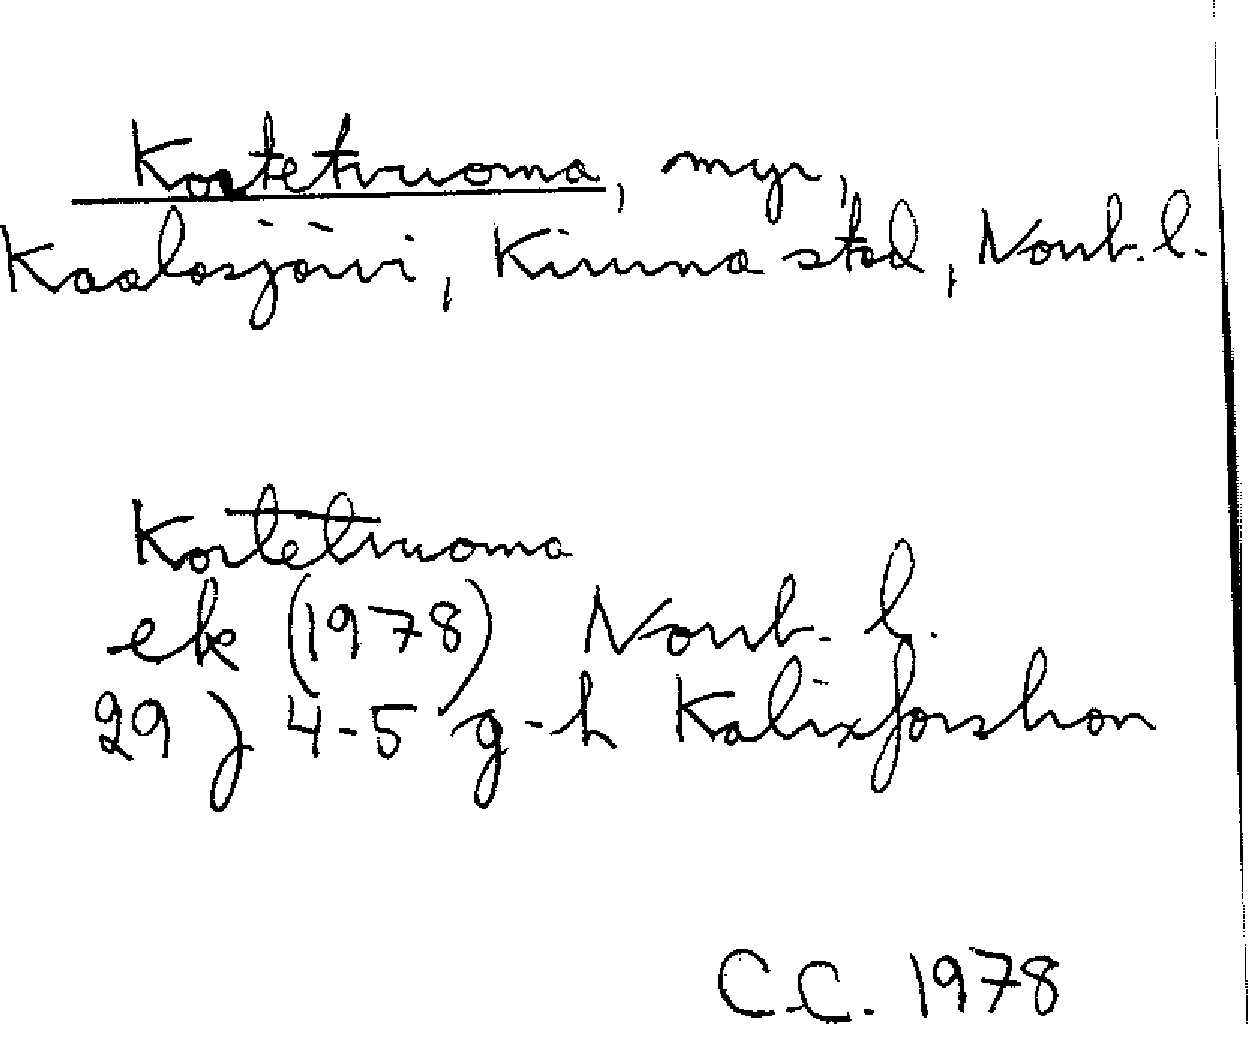 Kortetvuoma, myr,
Kaalasjärvi, Kiruna stad, Norrb. l.
Kortetvuoma
ek (1978) Norrb. l.
29 J 4-5 g-h Kalixforsbron
C.C. 1978